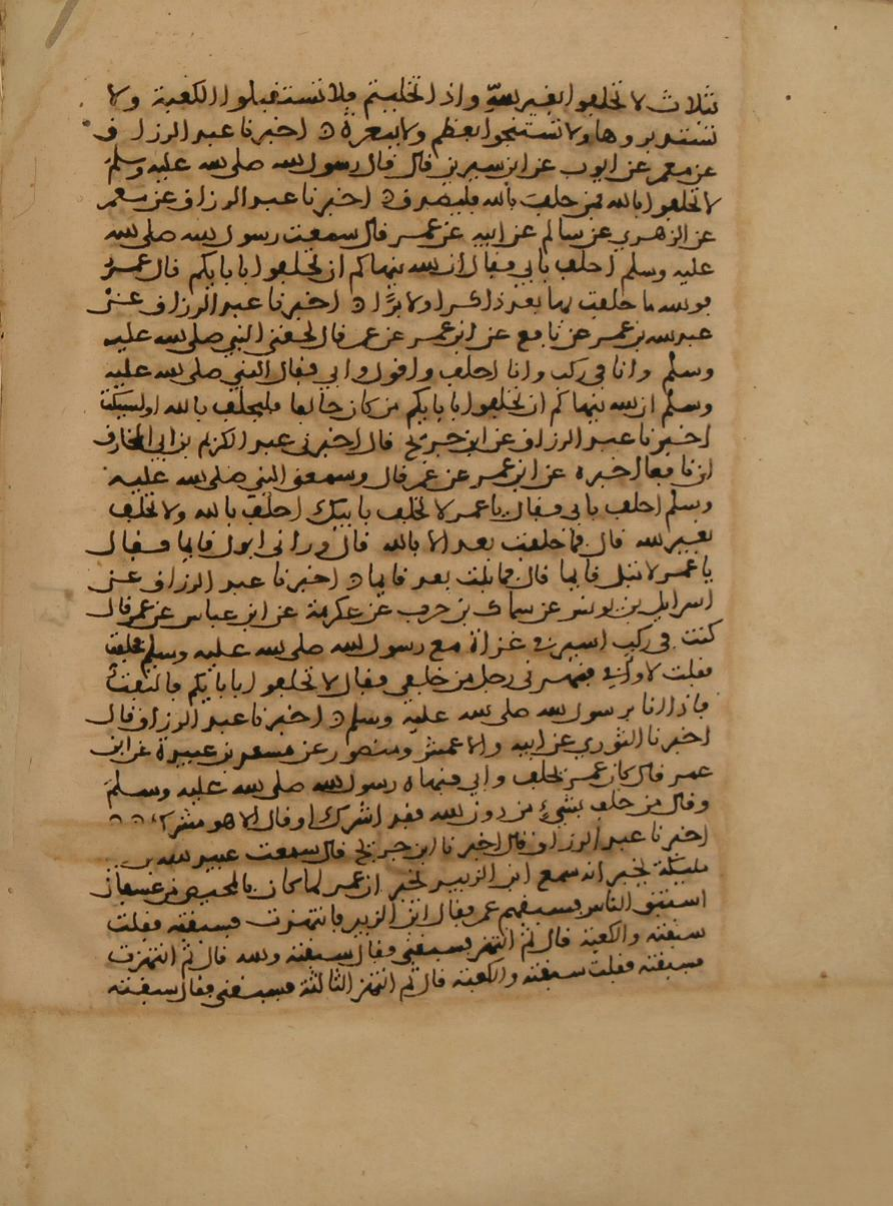 ثلاث لا تحلفوا بغير الله واذا تخليتم فلا تستقبلوا الكعبة ولا
تستدبروها ولا تستنجوا بعظم ولا ببعرة ه اخبرنا عبد الرزاق
عن معمر عن ايوب عن ابن سيرين قال قال رسول الله صلى الله عليه وسلم
لا تحلفوا بالله فمن حلف بالله فليصدق ه اخبرنا عبد الرزاق عن معمر
عن الزهري عن سالم عن ابيه عن عمر قال سمعت رسول الله صلى الله
عليه وسلم احلف بابي فقال ان الله ينهاكم ان تحلفوا بابايكم قال عمر
فوالله ما حلفت بها بعد ذاكرا ولا اثرا ه اخبرنا عبد الرزاق عن
عبد الله بن عمر عن نافع عن ابن عمر عن عمر قال لحقني النبي صلى الله عليه
وسلم وانا في ركب وانا احلف واقول وابي فقال النبي صلى الله عليه
وسلم ان الله ينهاكم ان تحلفوا بابايكم من كان حالفا فليحلف بالله او ليسكت
اخبرنا عبد الرزاق عن ابن جريج قال اخبرني عبد الكريم بن ابي المخارق
ان نافعا اخبره عن ابن عمر عن عمر قال وسمعني النبي صلى الله عليه
وسلم احلف بابي فقال يا عمر لا تحلف بابيك احلف بالله ولا تحلف
بغير الله قال فما حلفت بعد الا بالله قال وراني ابول قايما فقال
يا عمر لا تبل قايما قال فما بلت بعد قايما ه اخبرنا عبد الرزاق عن
اسرايل بن يونس عن سماك بن حرب عن عكرمة عن ابن عباس عن عمر قال
كنت في ركب اسير في غزاة مع رسول الله صلى الله عليه وسلم فحلفت
فقلت لا وابي فنهرني رجل من خلفي فقال لا تحلفوا بابايكم فالتفت
فاذا انا برسول الله صلى الله عليه وسلم ه اخبرنا عبد الرزاق قال
اخبرنا الثوري عن ابيه والاعمش ومنصور عن سعد بن عبيدة عن ابن
عمر قال كان عمر يحلف وابي فنهاه رسول الله صلى الله عليه وسلم
وقال من حلف بشيء من دون الله فقد اشرك او قال الا هو مشرك ه ه
اخبرنا عبد الرزاق قال اخبرنا ابن جريج قال سمعت عبد الله بن
مليكة يخبر انه سمع ابن الزبير يخبر ان عمر لما كان بالمخمص من عسفان
استبق الناس فسبقهم عمر فقال ابن الزبير فانتهزت فسبقته فقلت
سبقته والكعبة قال ثم انتهز فسبقني فقال سبقته والله قال ثم انتهزت
فسبقته فقلت سبقته والكعبة قال ثم انتهز الثالثة فسبقني فقال سبقته